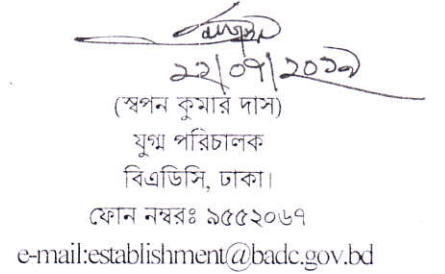 ২২/০৭/২০১৯
(স্বপন কুমার দাস)
যুগ্ম পরিচালক
বিএডিসি, ঢাকা।
ফোন নম্বরঃ ৯৫৫২০৬৭
e-mail:establishment@badc.gov.bd